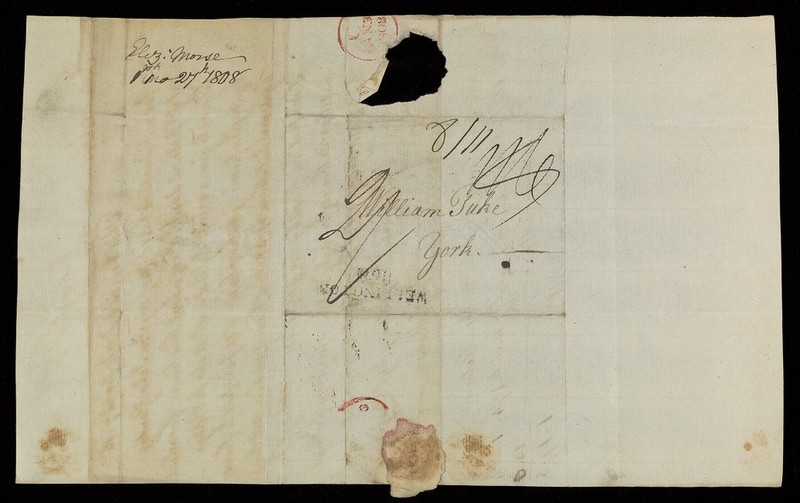 Eliz: Morse
1st mo 27th 1808
8/11
William Tuke
York.
WELLINGTON